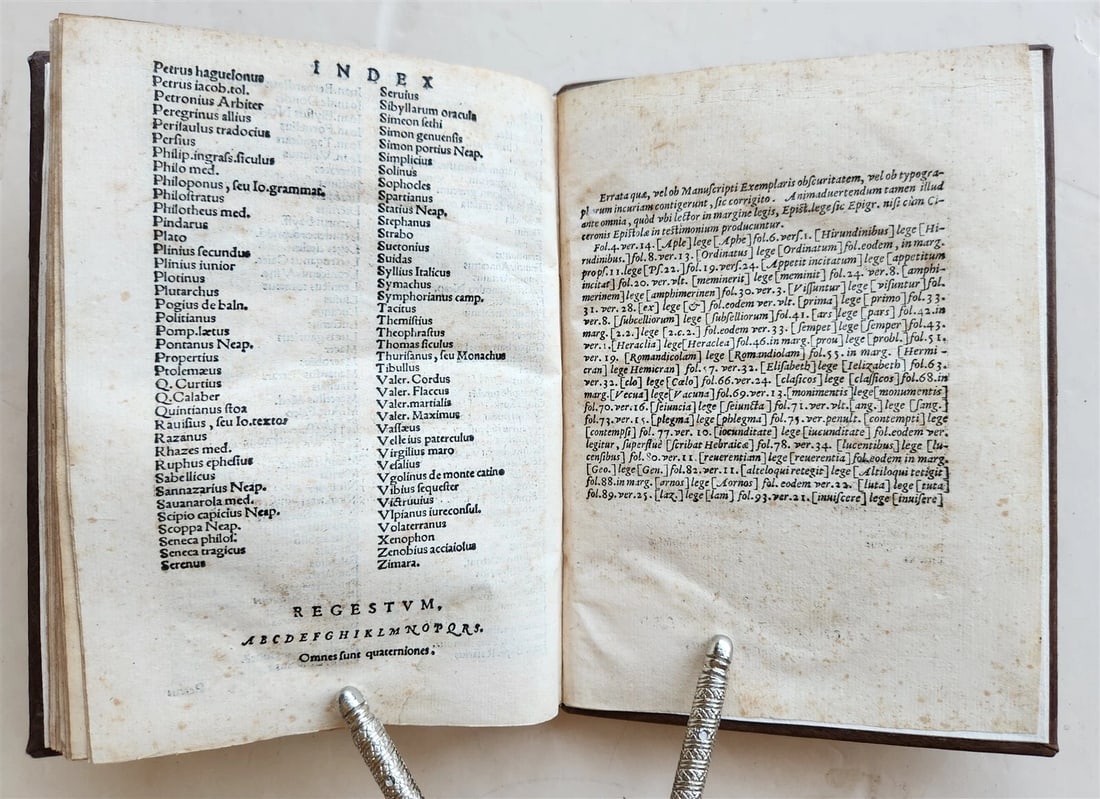 INDEX
Petrus haguelonus
Petrus iacob.tol.
Petronius Arbiter
Peregrinus allius
Perisaulus tradocius
Persius
Philip.ingrass.siculus
Philo med.
Philoponus, seu Io.grammat.
Philostratus
Philotheus med.
Pindarus
Plato
Plinius secundus
Plinius iunior
Plotinus
Plutarchus
Pogius de baln.
Politianus
Pomp.lætus
Pontanus Neap.
Propertius
Ptolemæus
Q. Curtius
Q. Calaber
Quintianus stoa
Rauisius, seu Io.textor
Razanus
Rhazes med.
Ruphus ephesius
Sabellicus
Sannazarius Neap.
Sauanarola med.
Scipio capicius Neap.
Scoppa Neap.
Seneca philos.
Seneca tragicus
Serenus
Seruius
Sibyllarum oracula
Simeon sethi
Simon genuensis
Simon portius Neap.
Simplicius
Solinus
Sophocles
Spartianus
Statius Neap.
Stephanus
Strabo
Suetonius
Suidas
Syllius Italicus
Symachus
Symphorianus camp.
Tacitus
Themistius
Theophrastus
Thomas siculus
Thurisanus, seu Monachus
Tibullus
Valer. Cordus
Valer. Flaccus
Valer.martialis
Valer. Maximus
Vassæus
Velleius paterculus
Virgilius maro
Vesalius
Vgolinus de monte catino
Vibius sequester
Victruuius
Vlpianus iureconsul.
Volaterranus
Xenophon
Zenobius acciaiolus
Zimara.
REGESTVM,
ABCDEFGHIKLMNOPQRS.
Omnes sunt quaterniones.
Errata quæ, vel ob Manuscripti Exemplaris obscuritatem, vel ob typogra-
phorum incuriam contigerunt, sic corrigito. Animaduertendum tamen illud
ante omnia, quòd vbi lector in margine legis, Epist.lege sic Epigr. nisi cùm Ci-
ceronis Epistolæ in testimonium producuntur.
Fol.4.ver.14. [Aple] lege [Aphe] fol.6.vers.1. [Hirundinibus] lege [Hi-
rudinibus.] fol.8.ver.13. [Ordinatus] lege [Ordinatum] fol.eodem, in marg.
propf.11.lege [Ps.22.] fol.19.vers.24. [Appetit incitatum] lege [appetitum
incitat] fol.20.ver.vlt. [meminerit] lege [meminit] fol.24. ver.8. [amphi-
merinem] lege [amphimerinen] fol.30.ver.3. [Vissuntur] lege [visuntur] fol.
31. ver.28. [ex] lege [&] fol.eodem ver.vlt. [prima] lege [primo] fol.33.
ver.8. [subcelliorum] lege [subselliorum] fol.41. [ars] lege [pars] fol.42.in
marg. [2.2.] lege [2.c.2.] fol.eodem ver.33. [semper] lege [semper] fol.43.
ver.1. [Heraclia] lege [Heraclea] fol.46.in marg. [prou] lege [probl.] fol.51.
ver. 19. [Romandicolam] lege [Romandiolam] fol.55. in marg. [Hermi-
cran] lege Hemicran] fol. 7. ver.32. [Elisabeth] lege [Ielizabeth] fol.63.
ver.32. [clo] lege [Cœlo] fol.66.ver.24. [clasicos] lege [classicos] fol.68.in
marg.[Vecua] lege [Vacuna] fol.69.ver.13. [monimentis] lege [monumentis]
fol.70.ver.16. [seiuncia] lege [seiuncta] fol.71. ver.vlt. [ang.] lege [sang.]
fol.73.ver.15. [plegma] lege [phlegma] fol.75.ver.penult. [contempti] lege
[contempsi] fol. 77.ver. 10. [iocunditate] lege [iucunditate] fol.eodem ver.
legitur, superfluè [scribat Hebraicæ] fol.78. ver.34. [lucentibus] lege [lu-
censibus] fol.80.ver.11. [reuerentian] lege [reuerentia] fol.eodem in marg.
[Geo.] lege [Gen.] fol.82.ver.11. [alteloqui retegit] lege [Altiloqui tetigit]
fol.88.in marg. [arnos] lege [Aornos] fol. eodem ver.22. [luta] lege [tuta]
fol.89.ver.25. [laz.] lege [lam] fol.93.ver.21. [inuiscere] lege [inuisere]